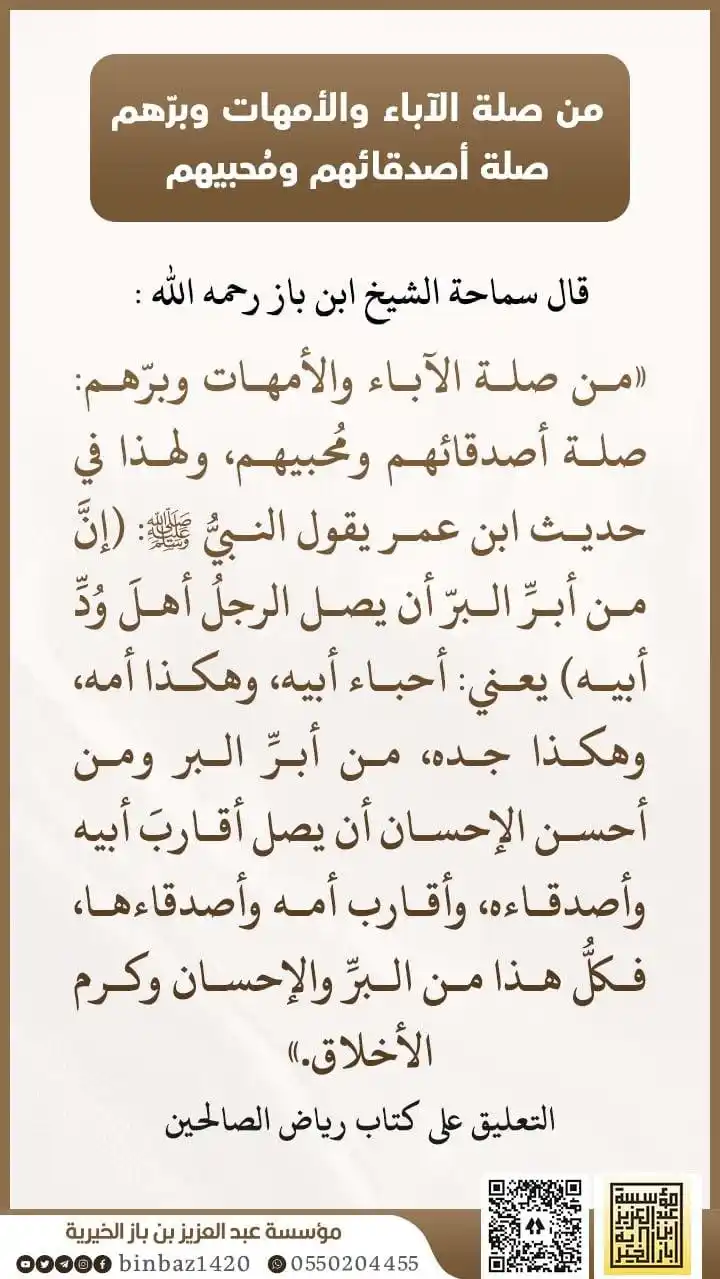 من صلة الآباء والأمهات وبرّهم
صلة أصدقائهم ومُحبيهم
قال سماحة الشيخ ابن باز رحمه الله :
«مـن صلـة الآبـاء والأمهـات وبرّهـم:
صلـة أصدقائهـم ومُحبيهـم، ولهـذا في
حديـث ابن عمـر يقول النـبيُّ ﷺ: (إنَّ
مـن أبـرِّ الـبرّ أن يصـل الرجلُ أهـلَ وُدِّ
أبيـه) يعـني: أحبـاء أبيه، وهكـذا أمه،
وهكـذا جـده، مـن أبـرِّ الـبر ومـن
أحسـن الإحسـان أن يصل أقـاربَ أبيه
وأصدقـاءه، وأقـارب أمـه وأصدقـاءهـا،
فـكلُّ هـذا مـن الـبرِّ والإحسـان وكـرم
الأخلاق.»
التعليق على كتاب رياض الصالحين
مؤسسة عبد العزيز بن باز الخيرية
binbaz1420 0550204455
مؤسسة
عبد العزيز
ابن باز
الخيرية